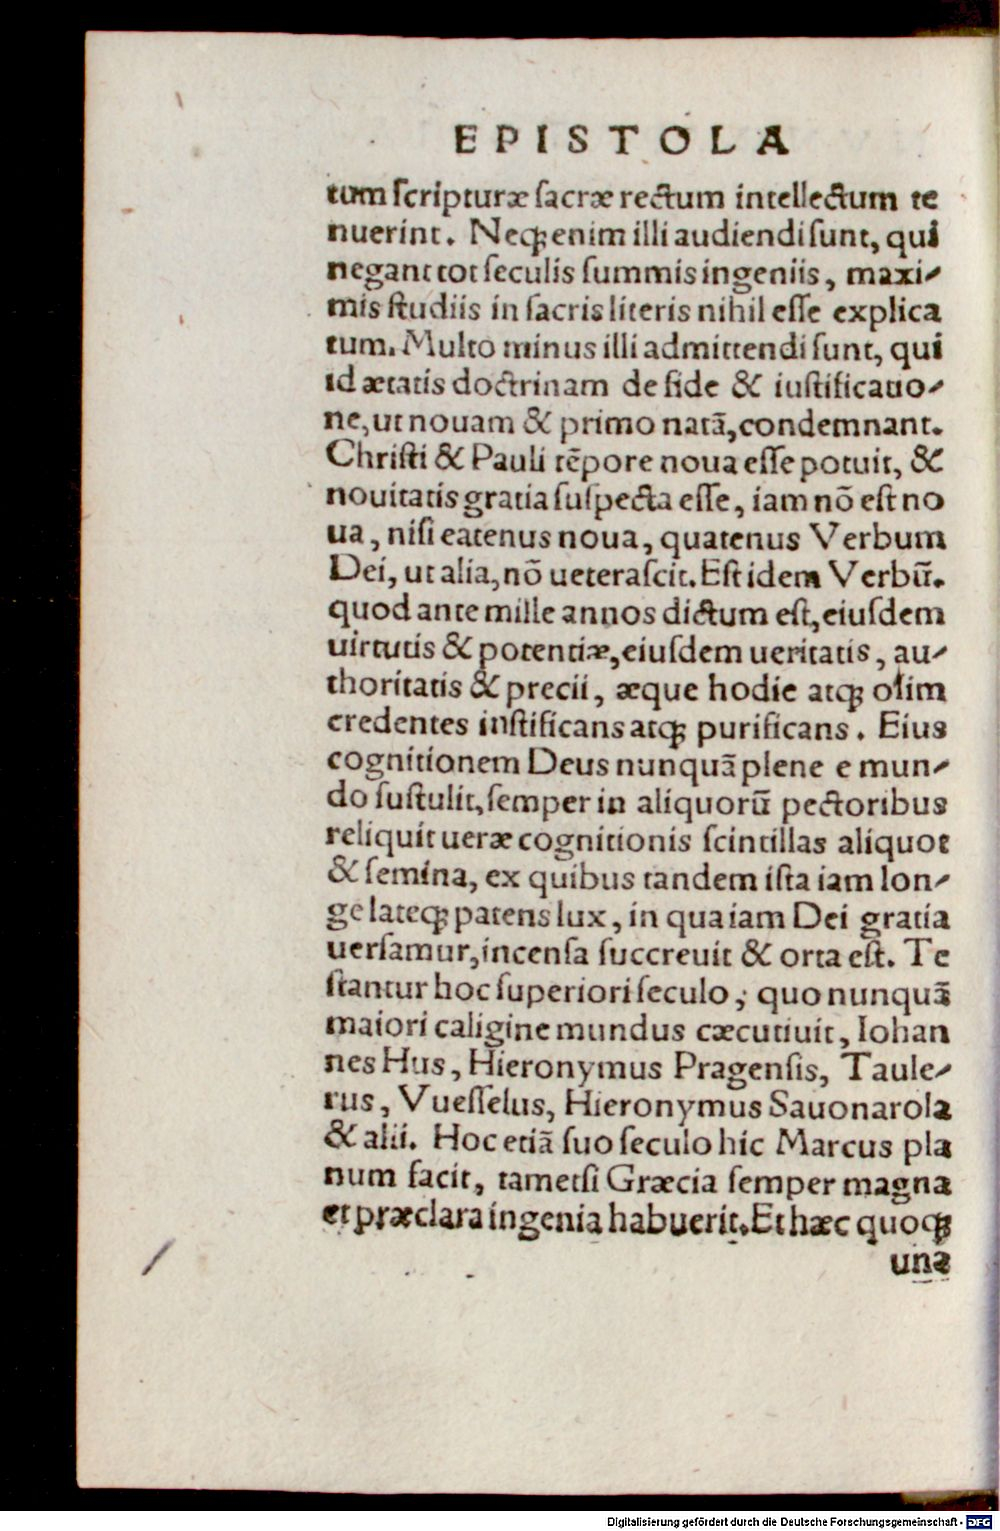 EPISTOLA
tum ſcripturæ ſacræ rectum intellectum te
nuerint. Neqꝫ enim illi audiendi ſunt, qui
negant tot ſeculis ſummis ingeniis, maxi-
mis ſtudiis in ſacris literis nihil eſſe explica
tum. Multo minus illi admittendi ſunt, qui
id ætatis doctrinam de fide & iuſtificatio-
ne, ut nouam & primo natã, condemnant.
Chriſti & Pauli tẽpore noua eſſe potuit, &
nouitatis gratia ſuſpecta eſſe, iam nõ eſt no
ua, niſi eatenus noua, quatenus Verbum
Dei, ut alia, nõ ueteraſcit. Eſt idem Verbũ.
quod ante mille annos dictum eſt, eiuſdem
uirtutis & potentiæ, eiuſdem ueritatis, au-
thoritatis & precii, æque hodie atqꝫ olim
credentes iuſtificans atqꝫ purificans. Eius
cognitionem Deus nunquã plene e mun-
do ſuſtulit, ſemper in aliquorũ pectoribus
reliquit ueræ cognitionis ſcintillas aliquot
& ſemina, ex quibus tandem iſta iam lon-
ge lateqꝫ patens lux, in qua iam Dei gratia
uerſamur, incenſa ſuccreuit & orta eſt. Te
ſtantur hoc ſuperiori ſeculo, quo nunquã
maiori caligine mundus cæcutiuit, Iohan
nes Hus, Hieronymus Pragenſis, Taule-
rus, Vueſſelus, Hieronymus Sauonarola
& alii. Hoc etiã ſuo ſeculo hic Marcus pla
num facit, tametſi Græcia ſemper magna
et præclara ingenia habuerit. Et hæc quoqꝫ
una
Digitalisierung gefördert durch die Deutsche Forschungsgemeinschaft - DFG